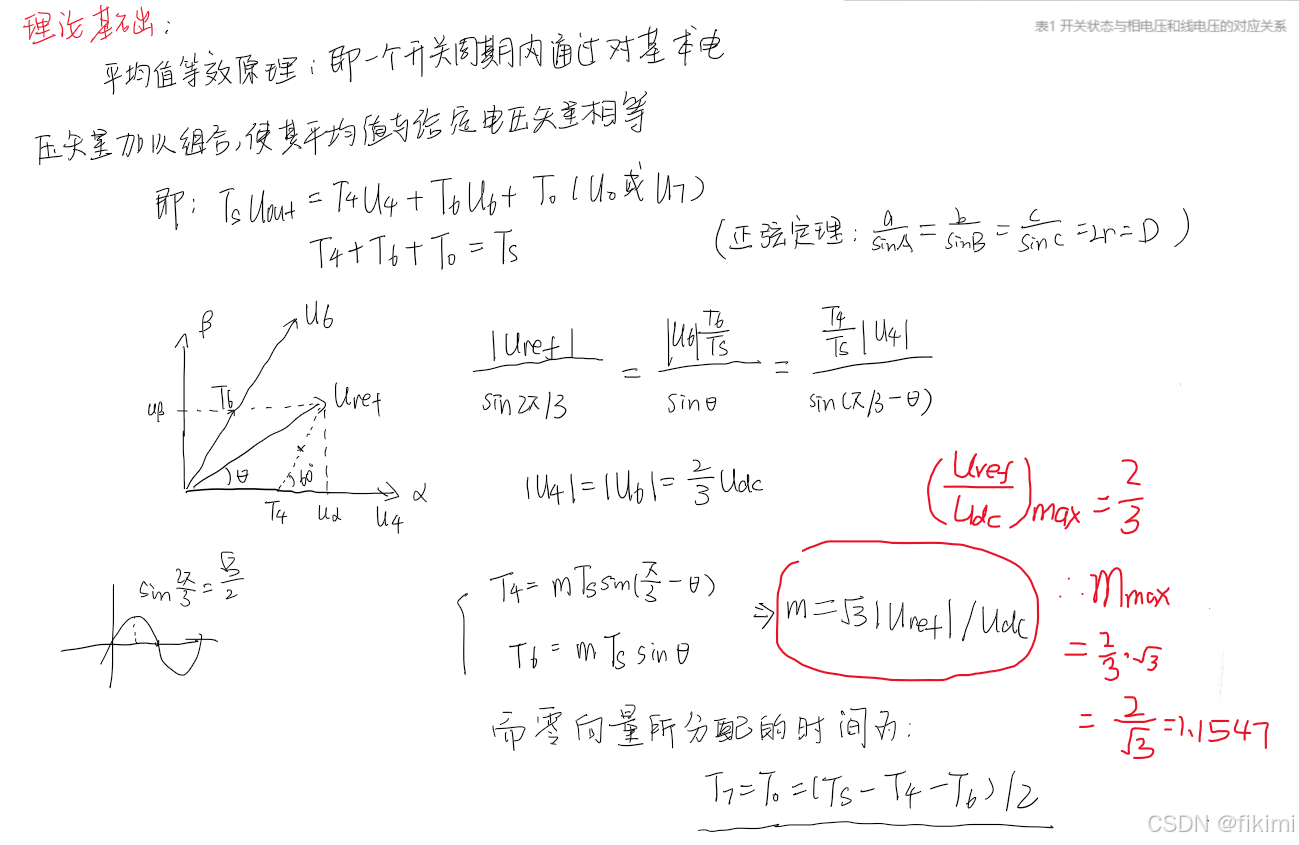 表1 开关状态与相电压和线电压的对应关系
理论基础：
平均值等效原理：即一个开关周期内通过对基本电
压矢量加以组合,使其平均值与给定电压矢量相等
即：TsUout = T4U4 + T6U6 + T0 (U0或U7)
T4 + T6 + T0 = Ts
(正弦定理：a/sinA = b/sinB = c/sinC = 2r = D)
β
U6
T6
Uref
uβ
θ
60°
α
T4
Uα
U4
|Uref| / sin2π/3 = |U6| T6/Ts / sinθ = T4/Ts |U4| / sin(π/3-θ)
|U4| = |U6| = 2/3 Udc
(Uref/Udc)max = 2/3
sin 2π/3 = √3/2
T4 = mTs sin(π/3 - θ)
T6 = mTs sinθ
⇒ m = √3|Uref| / Udc
∴ Mmax
= 2/3 · √3
= 2/√3 = 1.1547
而零向量所分配的时间为：
T7 = T0 = (Ts - T4 - T6) / 2
CSDN @fikimi